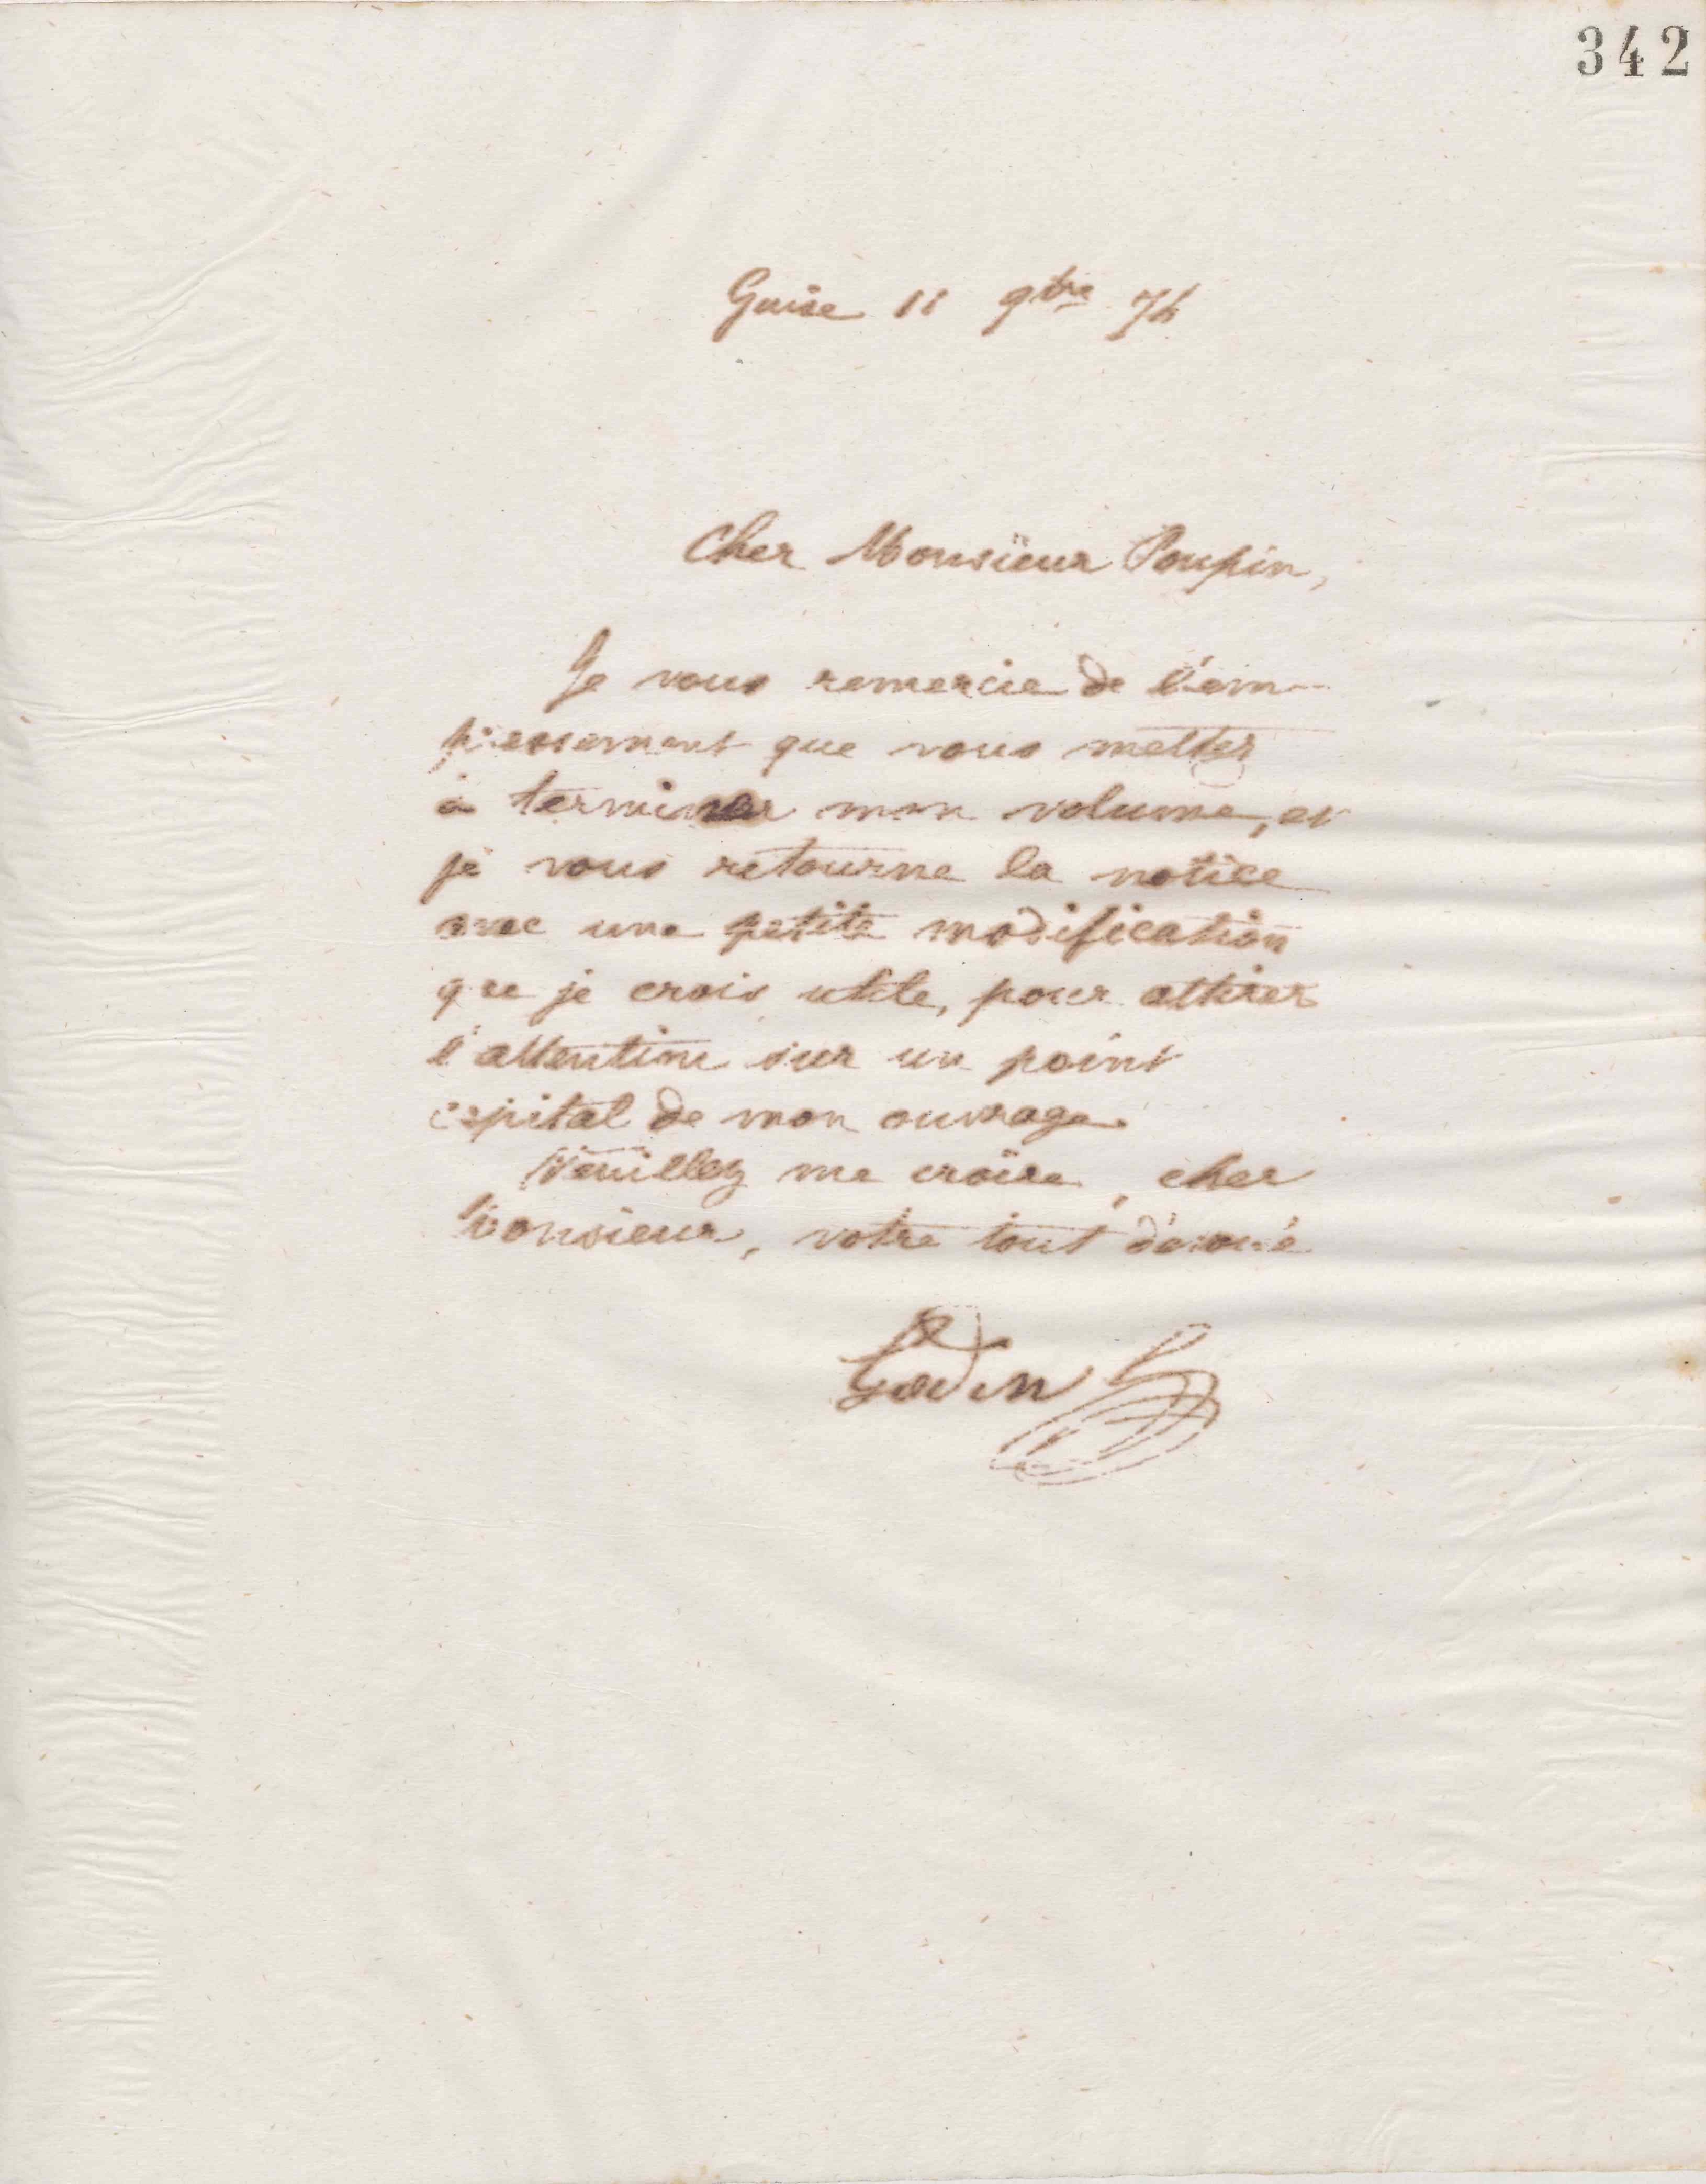 342
Guise 11 9bre 74
Cher Monsieur Poupin,
Je vous remercie de l'em-
pressement que vous mettez
à terminer mon volume, et
je vous retourne la notice
avec une petite modification
que je crois utile, pour attirer
l'attention sur un point
capital de mon ouvrage.
Veuillez me croire, cher
Monsieur, votre tout dévoué
Godin